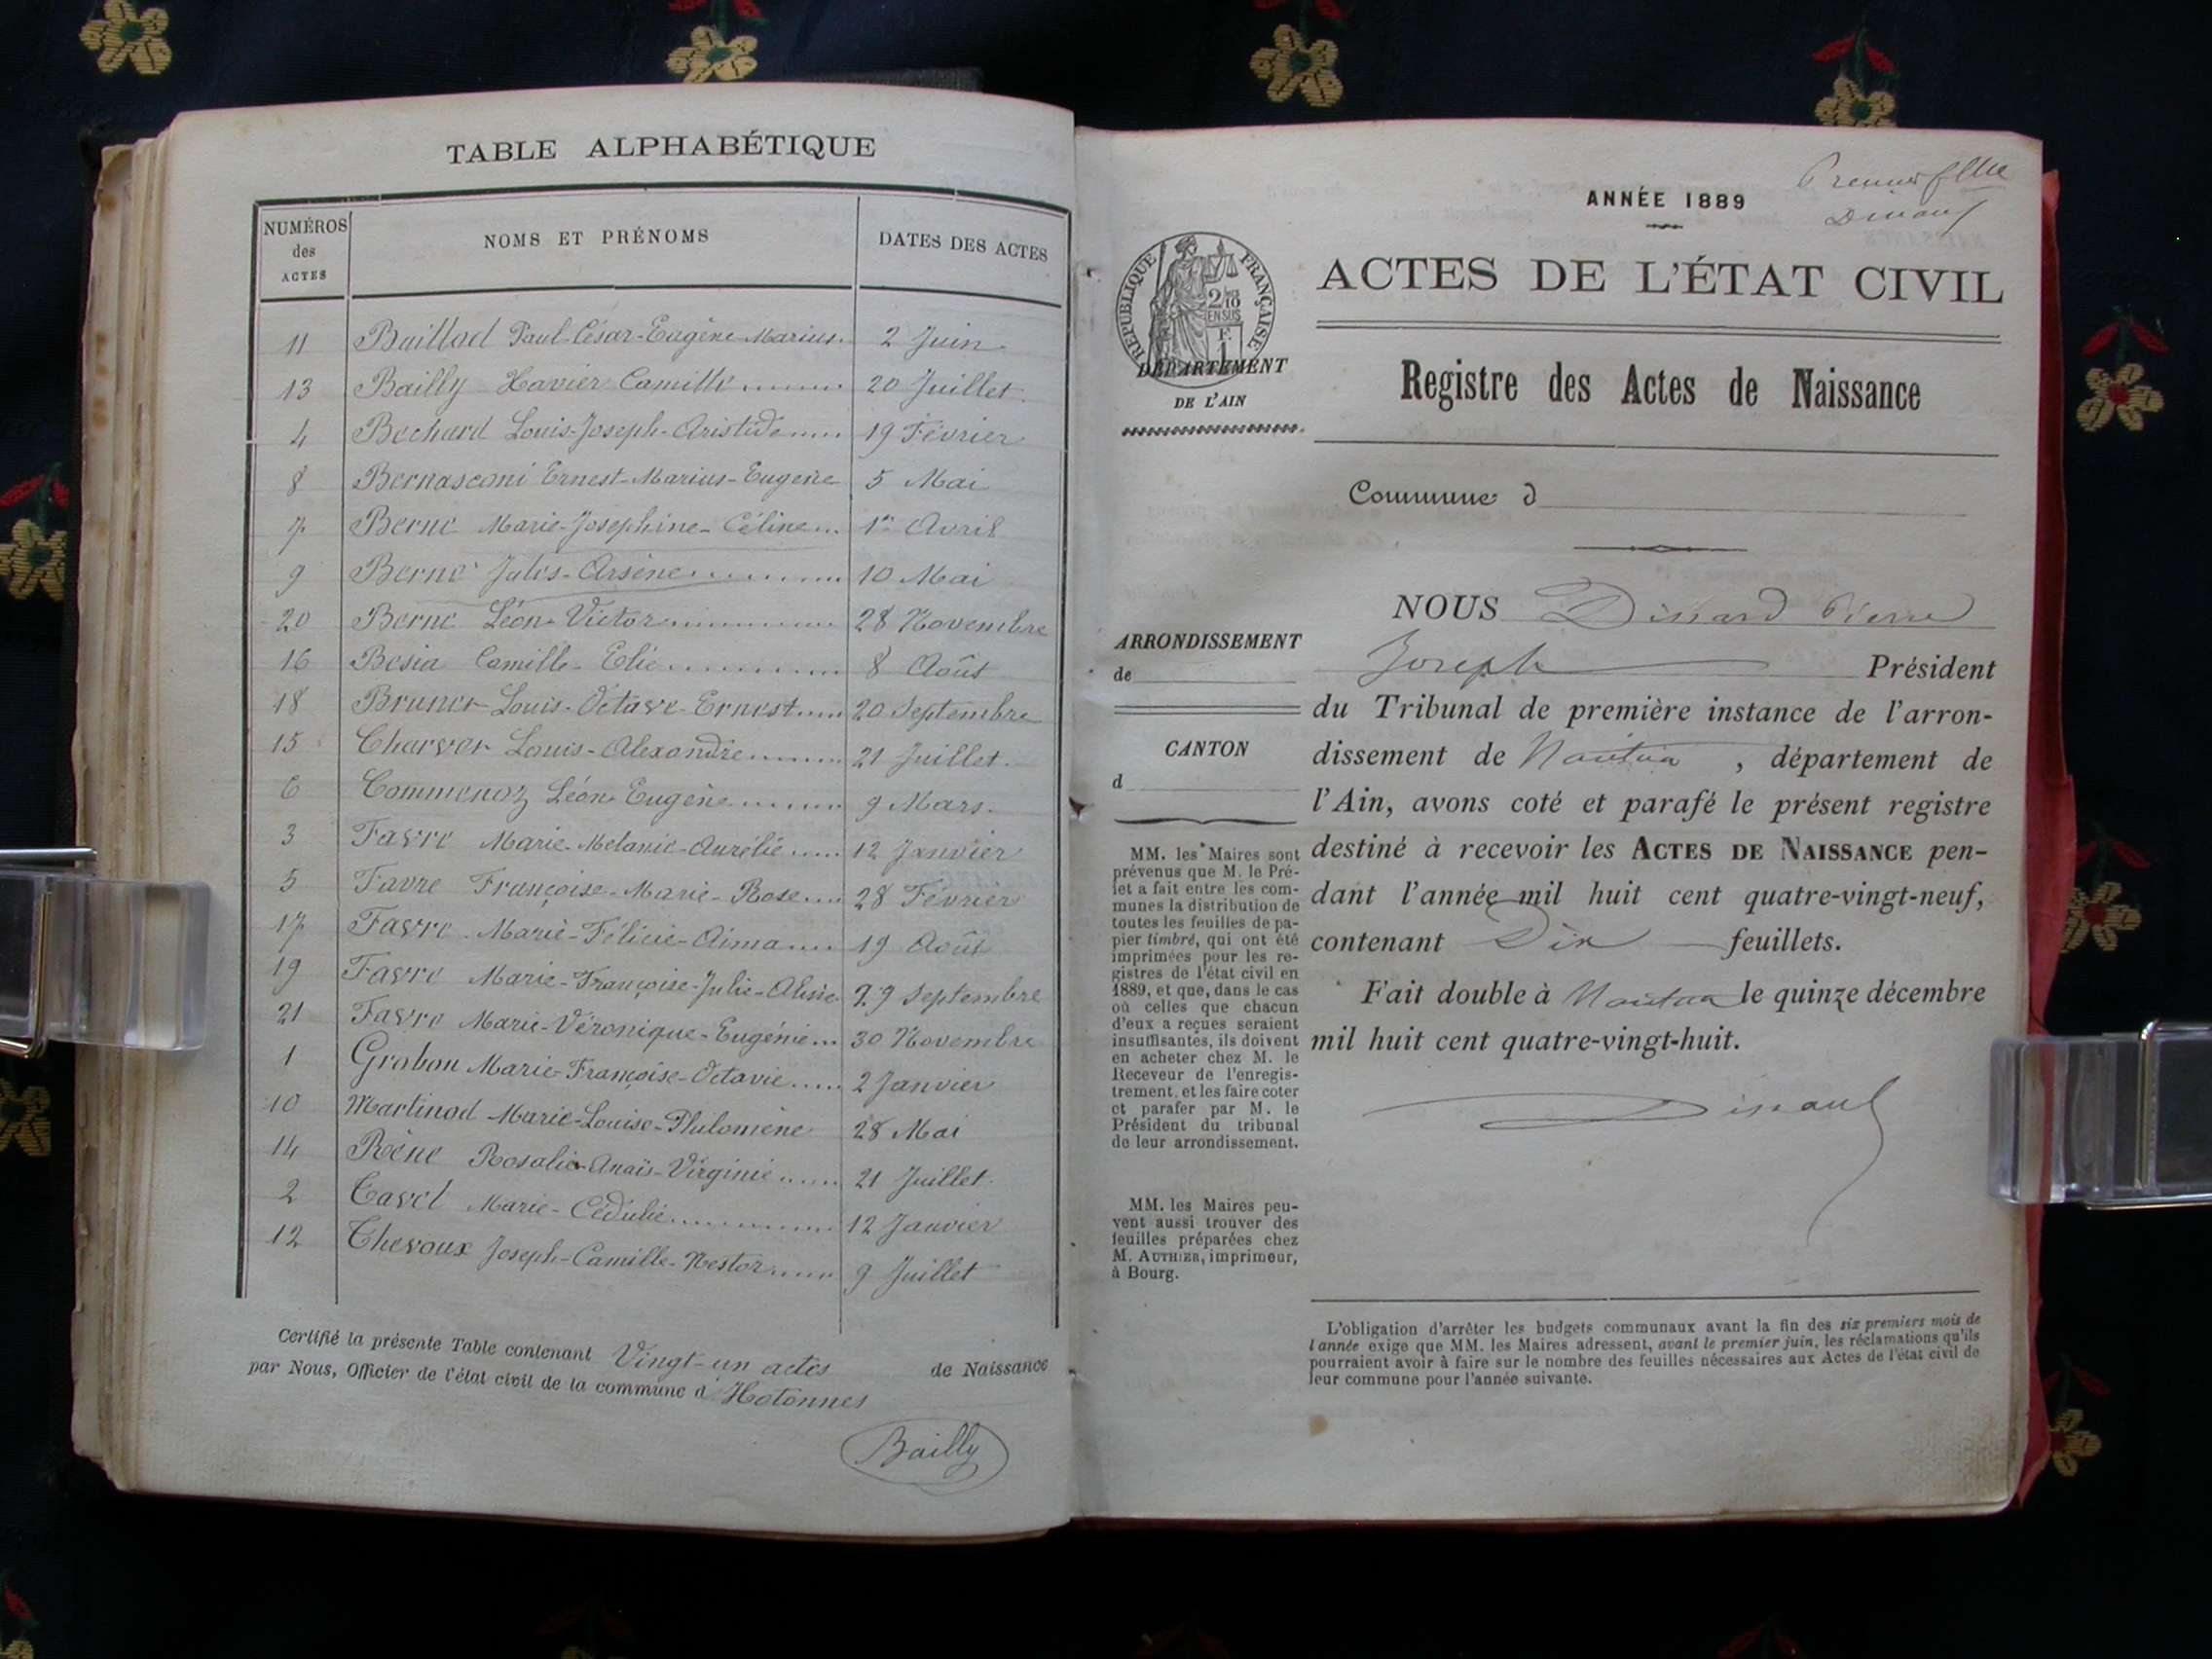 TABLE ALPHABÉTIQUE
NUMÉROS des ACTES
NOMS ET PRÉNOMS
DATES DES ACTES
11 Baillod Paul-César-Eugène-Marius. 2 Juin
13 Bailly Xavier Camille 20 Juillet.
4 Bochard Louis-Joseph-Aristide 19 Février
8 Bernasconi Ernest-Marius-Eugène 5 Mai
7 Berne Marie-Josephine-Céline 1er Avril
9 Berne Jules-Arsène 10 Mai
20 Berne Léon-Victor 28 Novembre
16 Besia Camille-Elie 8 Août
18 Bruner Louis-Octave-Ernest 20 Septembre
15 Charver Louis-Alexandre 21 Juillet.
6 Commenoz Léon-Eugène 9 Mars.
3 Favre Marie-Melanie-Aurélie 12 Janvier
5 Favre Françoise-Marie-Rose 28 Février
17 Favre Marie-Félicie-Aima 19 Août
19 Favre Marie-Françoise-Julie-Aline 29 Septembre
21 Favre Marie-Véronique-Eugénie 30 Novembre
1 Grobon Marie-Françoise-Octavie 2 Janvier
10 Martinod Marie-Louise-Philomène 28 Mai
14 Rène Rosalie-Anaïs-Virginie 21 Juillet.
2 Tavel Marie-Cédulie 12 Janvier
12 Thevoux Joseph-Camille-Nestor 9 Juillet
Certifié la présente Table contenant Vingt-un actes de Naissance
par Nous, Officier de l'état civil de la commune d'Hotonnes
Bailly
Premier
ANNÉE 1889
RÉPUBLIQUE FRANÇAISE
ACTES DE L'ÉTAT CIVIL
DÉPARTEMENT
DE L'AIN
Registre des Actes de Naissance
Commune d
ARRONDISSEMENT
de
CANTON
d
MM. les Maires sont
prévenus que M. le Pré-
fet a fait entre les com-
munes la distribution de
toutes les feuilles de pa-
pier timbré, qui ont été
imprimées pour les re-
gistres de l'état civil en
1889, et que, dans le cas
où celles que chacun
d'eux a reçues seraient
insuffisantes, ils doivent
en acheter chez M. le
Receveur de l'enregis-
trement, et les faire coter
et parafer par M. le
Président du tribunal
de leur arrondissement.
MM. les Maires peu-
vent aussi trouver des
feuilles préparées chez
M. AUTHIER, imprimeur,
à Bourg.
NOUS Pierre
Joseph Président
du Tribunal de première instance de l'arron-
dissement de Nantua, département de
l'Ain, avons coté et parafé le présent registre
destiné à recevoir les ACTES DE NAISSANCE pen-
dant l'année mil huit cent quatre-vingt-neuf,
contenant Dix feuillets.
Fait double à Nantua le quinze décembre
mil huit cent quatre-vingt-huit.
L'obligation d'arrêter les budgets communaux avant la fin des six premiers mois de
l'année exige que MM. les Maires adressent, avant le premier juin, les réclamations qu'ils
pourraient avoir à faire sur le nombre des feuilles nécessaires aux Actes de l'état civil de
leur commune pour l'année suivante.